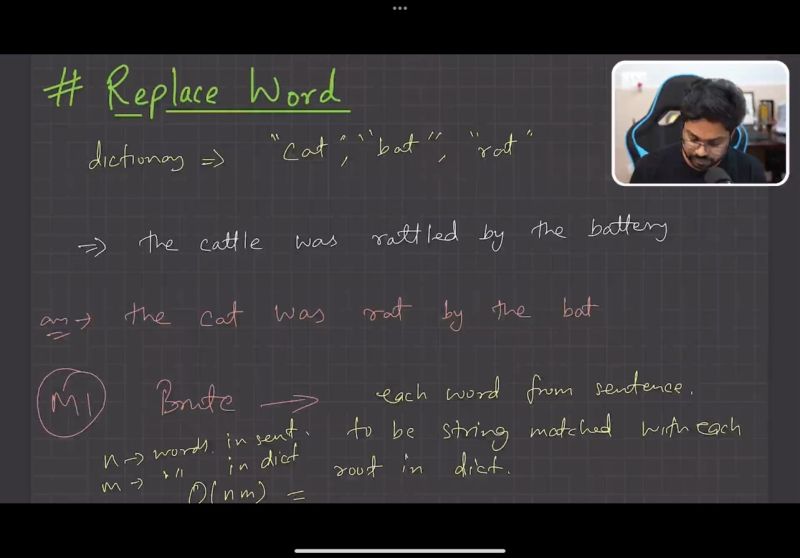 # Replace Word
dictionary => "cat", "bat", "rat"
=> the cattle was rattled by the battery
ans → the cat was rat by the bat
M1 Brute → each word from sentence.
to be string matched with each
root in dict.
n → words in sent.
m → " in dict
O(nm) =